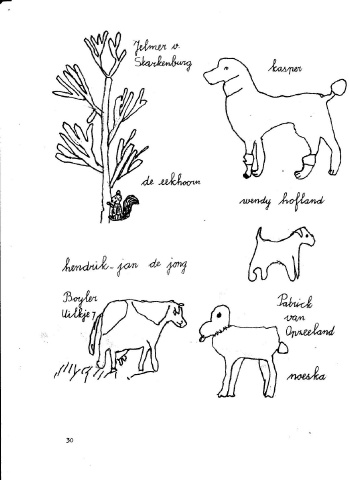 Jelmer v
Starkenburg
kasper
de eekhoorn
wendy hofland
hendrik-jan de jong
Boyler
Uilkje 7
Patrick
van
Opzeeland
noeska
30